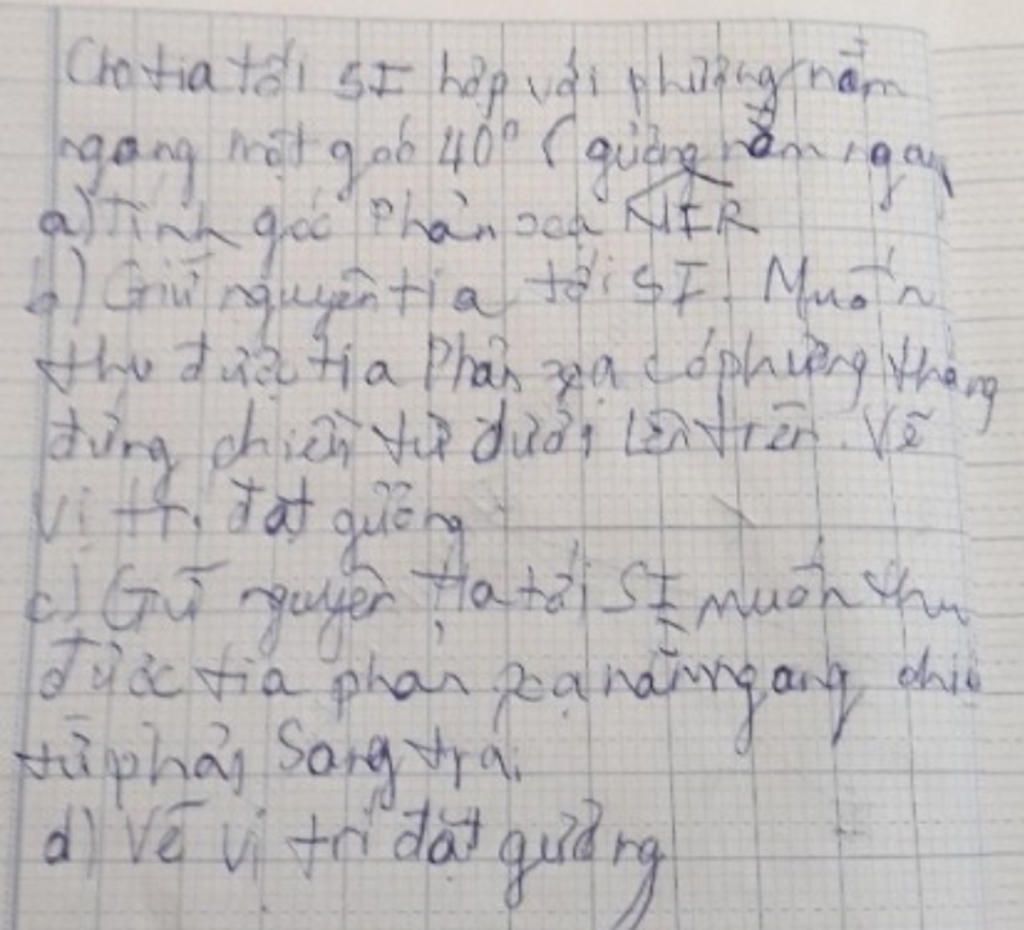 Cho tia tới SI hợp với phương nằm
ngang một góc 40° ( gương nằm ngang
a) Tính góc phản xạ NIR
b) Giữ nguyên tia tới SI. Muốn
thu được tia Phản xạ có phương thẳng
đứng chiều từ dưới lên trên. Vẽ
vị trí đặt gương
c) Giữ nguyên tia tới SI muốn thu
được tia phản xạ nằm ngang chiều
từ phải sang trái
d) Vẽ vị trí đặt gương